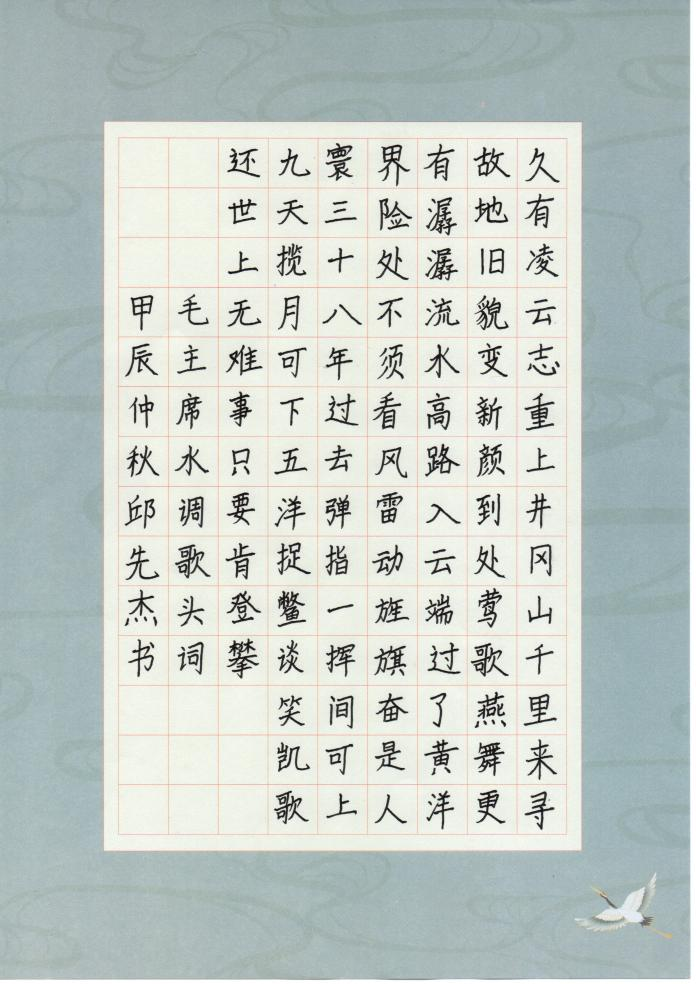 久有凌云志重上井冈山千里来寻
故地旧貌变新颜到处莺歌燕舞更
有潺潺流水高路入云端过了黄洋
界险处不须看风雷动旌旗奋是人
寰三十八年过去弹指一挥间可上
九天揽月可下五洋捉鳖谈笑凯歌
还世上无难事只要肯登攀
毛主席水调歌头词
甲辰仲秋邱先杰书